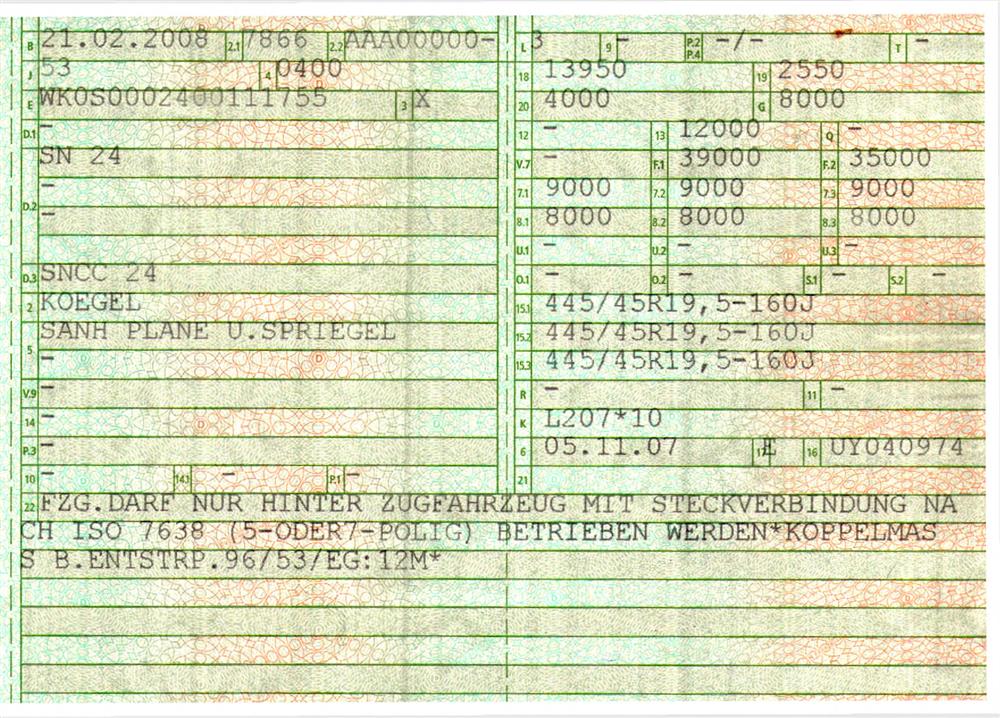 B 21.02.2008 2.1 7866 2.2 AAA00000-
J 53 4 0400
E WK0S0002400111755 3 X
D.1 -
SN 24
D.2 -
-
D.3 SNCC 24
2 KOEGEL
5 SANH PLANE U.SPRIEGEL
-
V.9 -
14 -
P.3 -
10 - 14.1 - P.1 -
L 3 9 - P.2 P.4 -/- T -
18 13950 19 2550
20 4000 G 8000
12 - 13 12000 Q -
V.7 - F.1 39000 F.2 35000
7.1 9000 7.2 9000 7.3 9000
8.1 8000 8.2 8000 8.3 8000
U.1 - U.2 - U.3 -
O.1 - O.2 - S.1 - S.2 -
15.1 445/45R19,5-160J
15.2 445/45R19,5-160J
15.3 445/45R19,5-160J
R - 11 -
K L207*10
6 05.11.07 17 E 16 UY040974
21
22 FZG.DARF NUR HINTER ZUGFAHRZEUG MIT STECKVERBINDUNG NA
CH ISO 7638 (5-ODER7-POLIG) BETRIEBEN WERDEN*KOPPELMAS
S B.ENTSTRP.96/53/EG:12M*